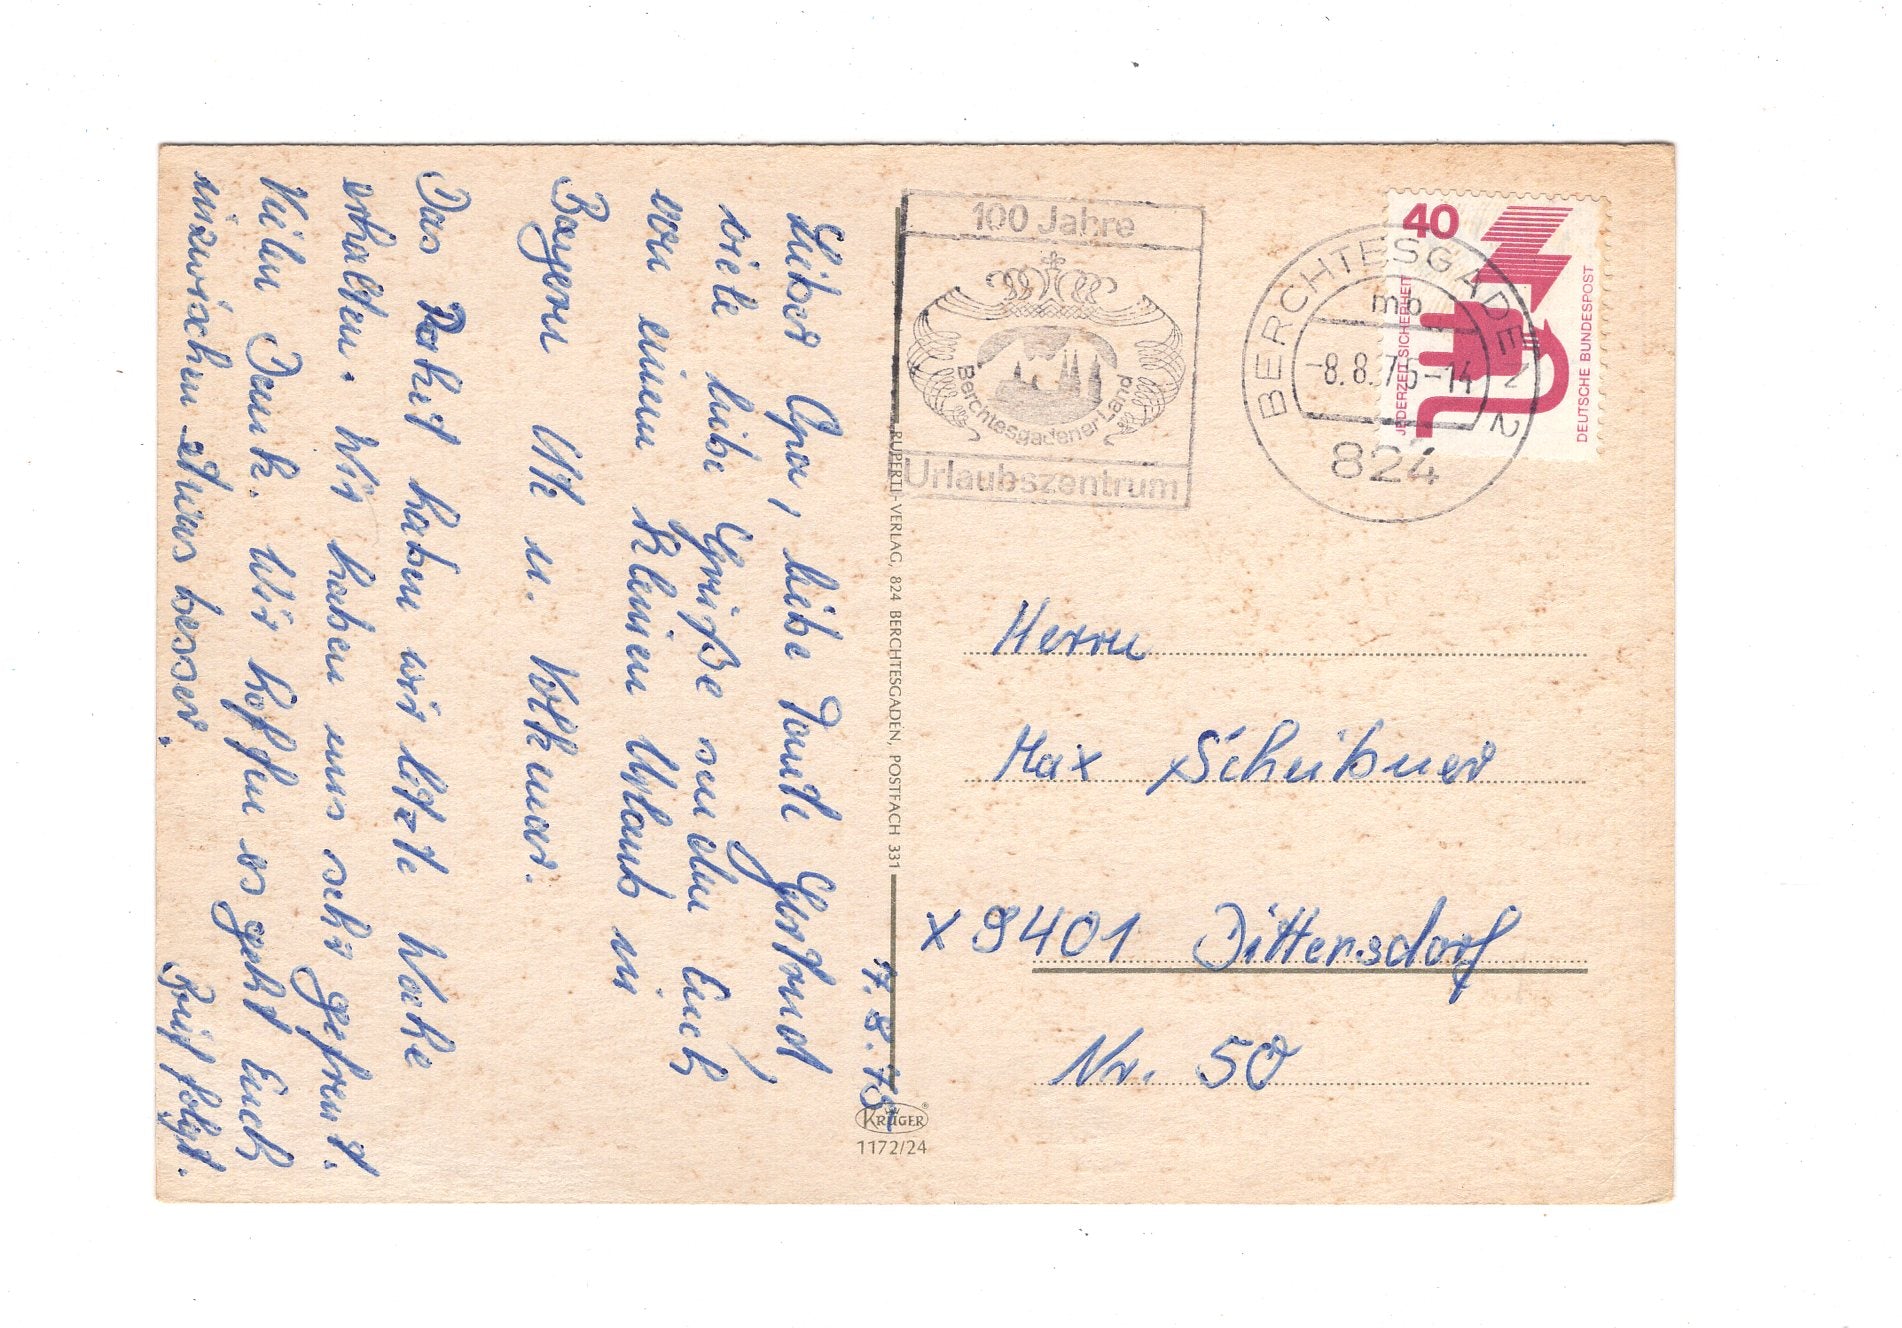 7. 8. 75
Lieber Opa, liebe Tante Gertrud,
viele liebe Grüße senden Euch
von einem kleinen Urlaub in
Bayern Ute u. Volkmar.
Das Paket haben wir letzte Woche
erhalten. Wir haben uns sehr gefreut.
Vielen Dank. Wir hoffen es geht Euch
inzwischen etwas besser.
Brief folgt.
RUPERTI-VERLAG, 824 BERCHTESGADEN, POSTFACH 331
KRÜGER
1172/24
100 Jahre
Berchtesgadener Land
Urlaubszentrum
BERCHTESGADEN 2
mb
-8.8.75-14
824
40
JEDERZEIT SICHERHEIT
DEUTSCHE BUNDESPOST
Herrn
Max Scheibner
x 9401 Dittersdorf
Nr. 50